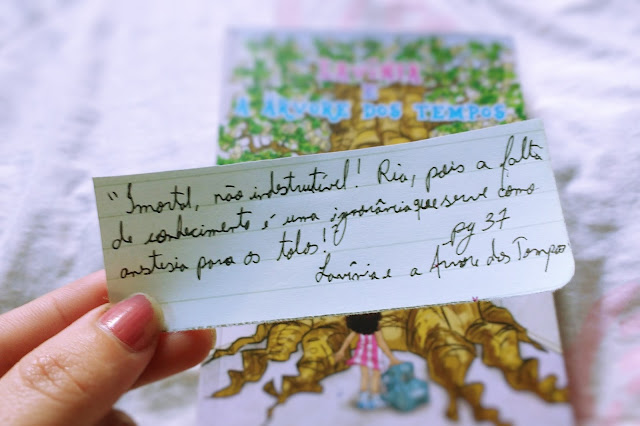 LAVÍNIA
E
A ÁRVORE DOS TEMPOS
"Imortal, não indestrutível! Ria, pois a falta
de conhecimento é uma ignorância que serve como
anestesia para os tolos!"
pg 37
Lavínia e a Árvore dos Tempos